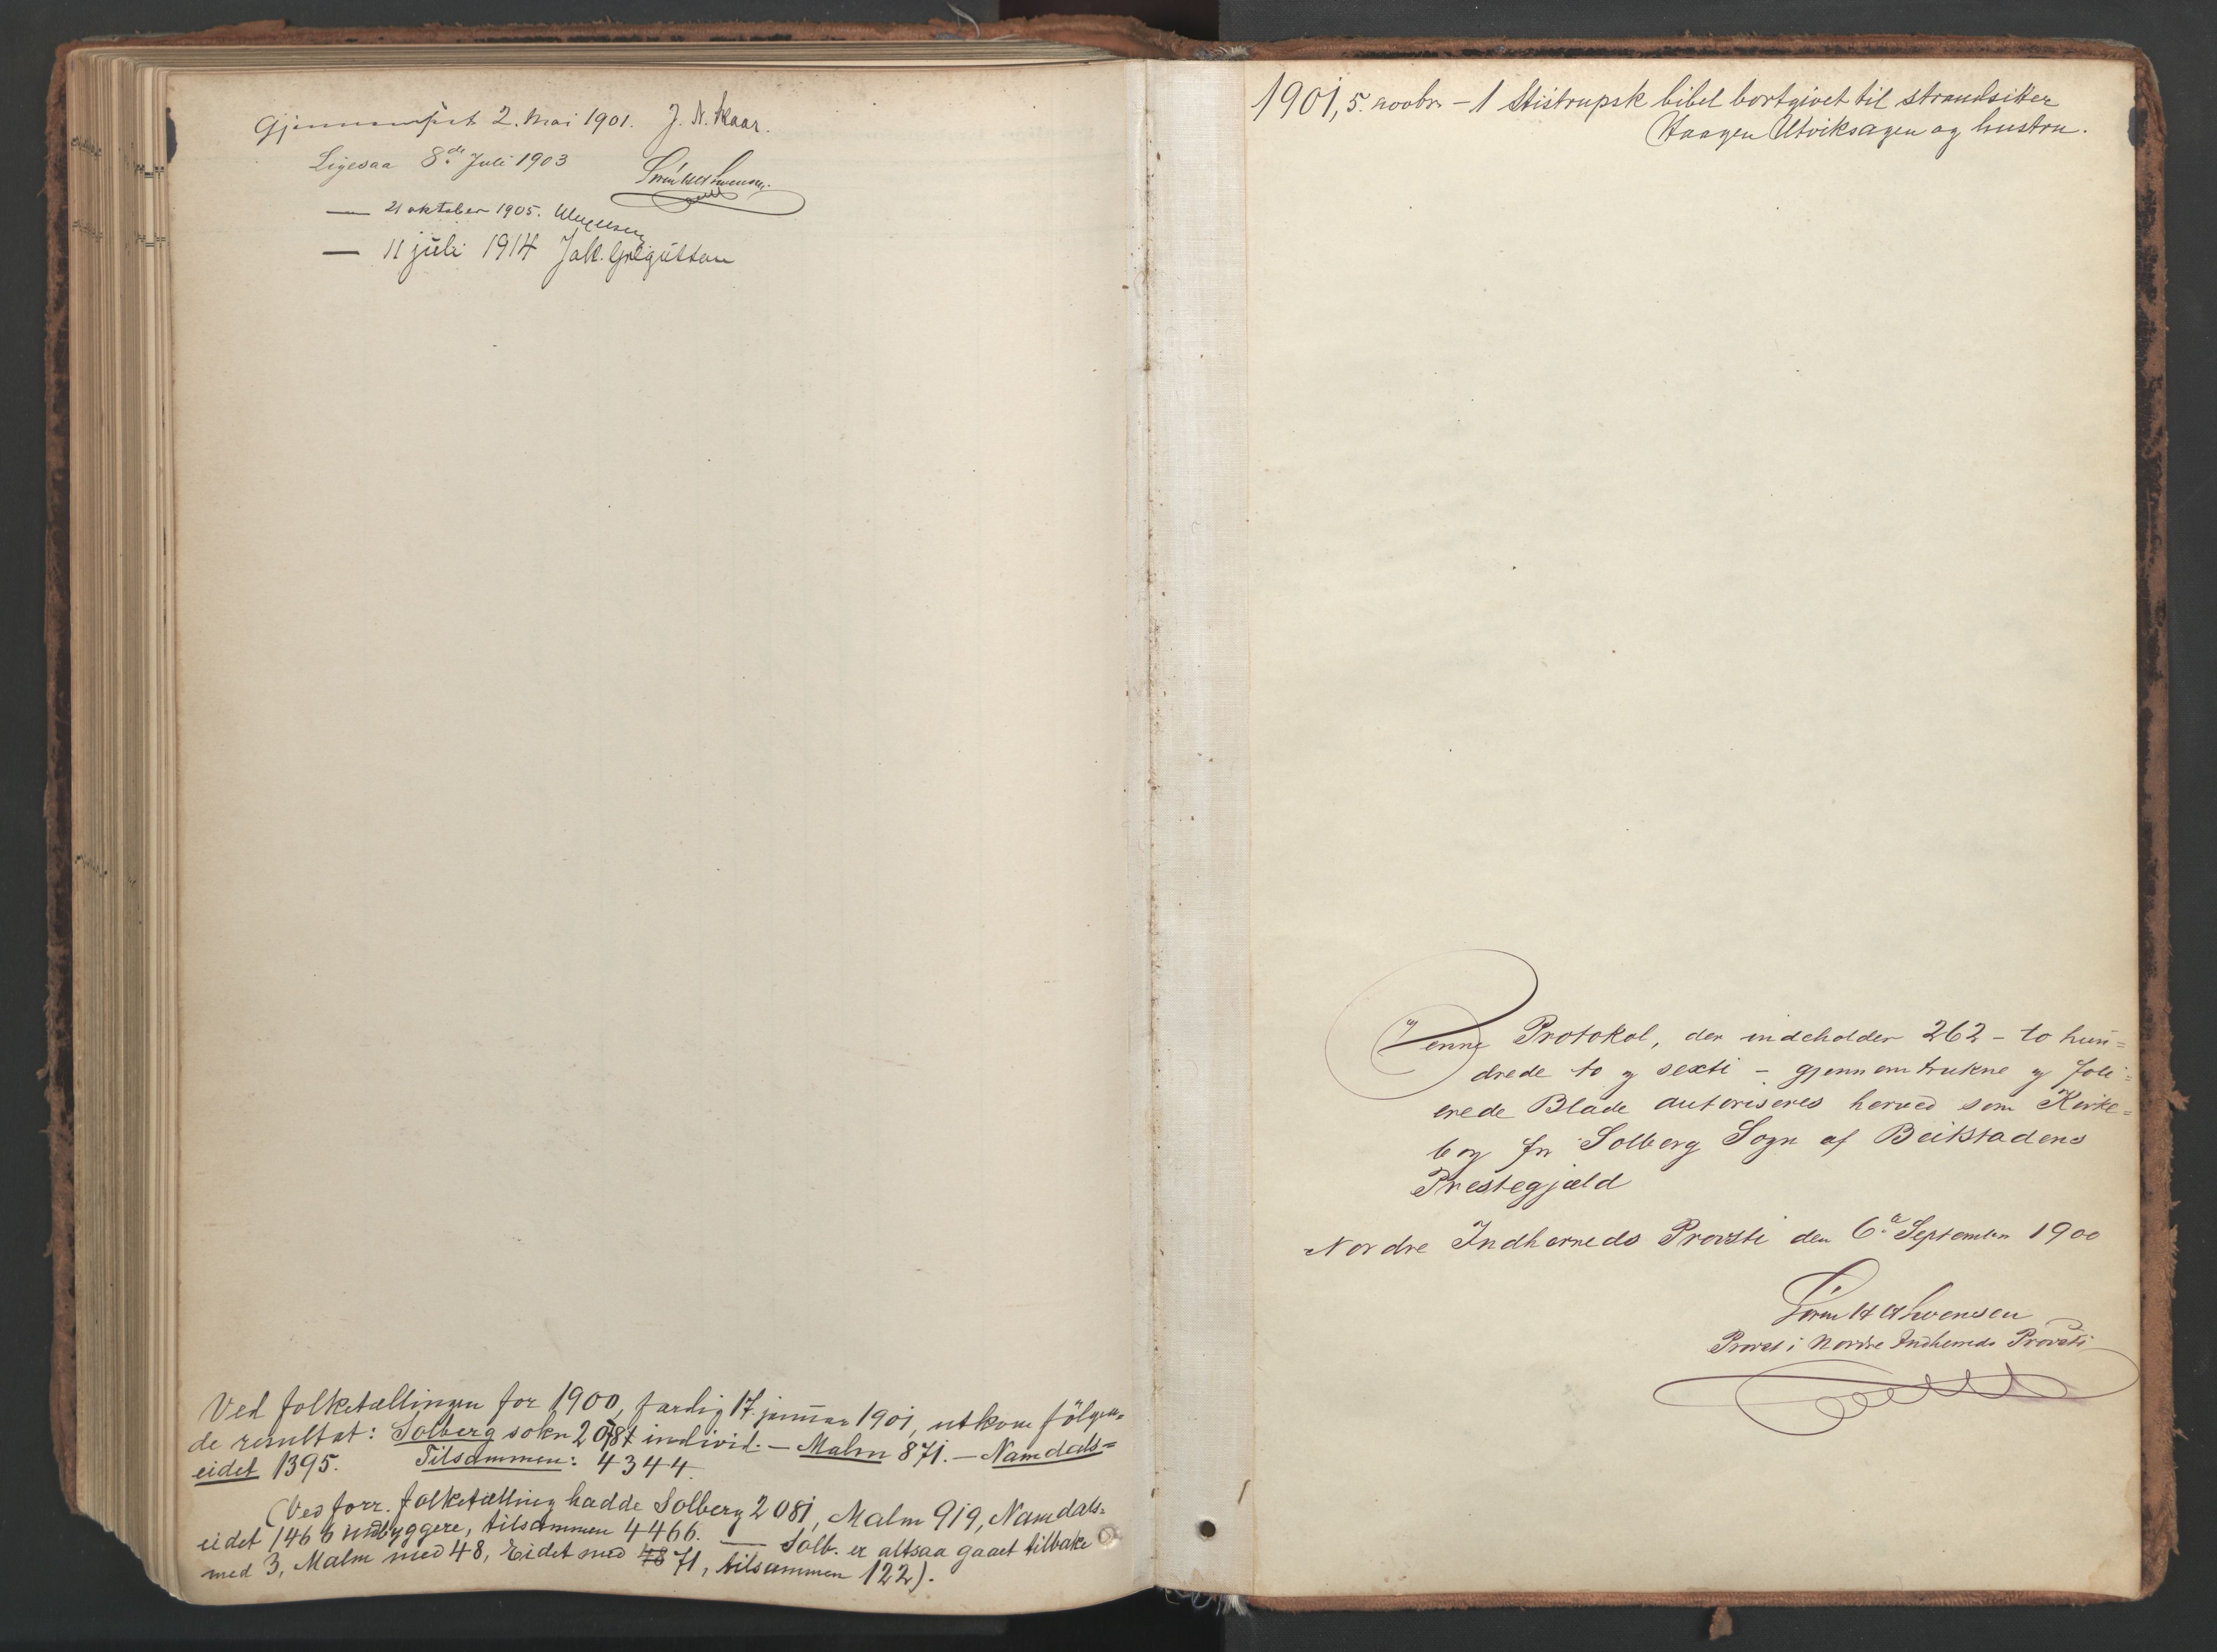 Gjennemseet 2. Mai 1901. J. N. Kaar.
Ligesaa 8de Juli 1903
— 21 oktober 1905.
— 11 juli 1914
Ved folketællingen for 1900, færdig 17. januar 1901, utkom følgen-
de resultat: Solberg sokn 2078 individ. — Malm 871. — Namdals-
eidet 1395. Tilsammen: 4344.
(Ved forr. folketælling hadde Solberg 2081, Malm 919, Namdals-
eidet 1466 indbyggere, tilsammen 4466. — Solb. er altsaa gaaet tilbake
med 3, Malm med 48, Eidet med 71, tilsammen 122).
1901, 5. novbr. – 1 Stistrupsk bibel bortgivet til strandsitter
Haagen Utviksagen og hustru.
Denne Protokol, der indeholder 262 – to hun=
drede to og sexti – gjennemtrukne og foli=
erede Blade autoriseres herved som Kirke=
bog for Solberg Sogn af Beitstadens
Prestegjæld
Nordre Indherreds Provsti den 6te September 1900
Provst i Nordre Indherreds Provsti